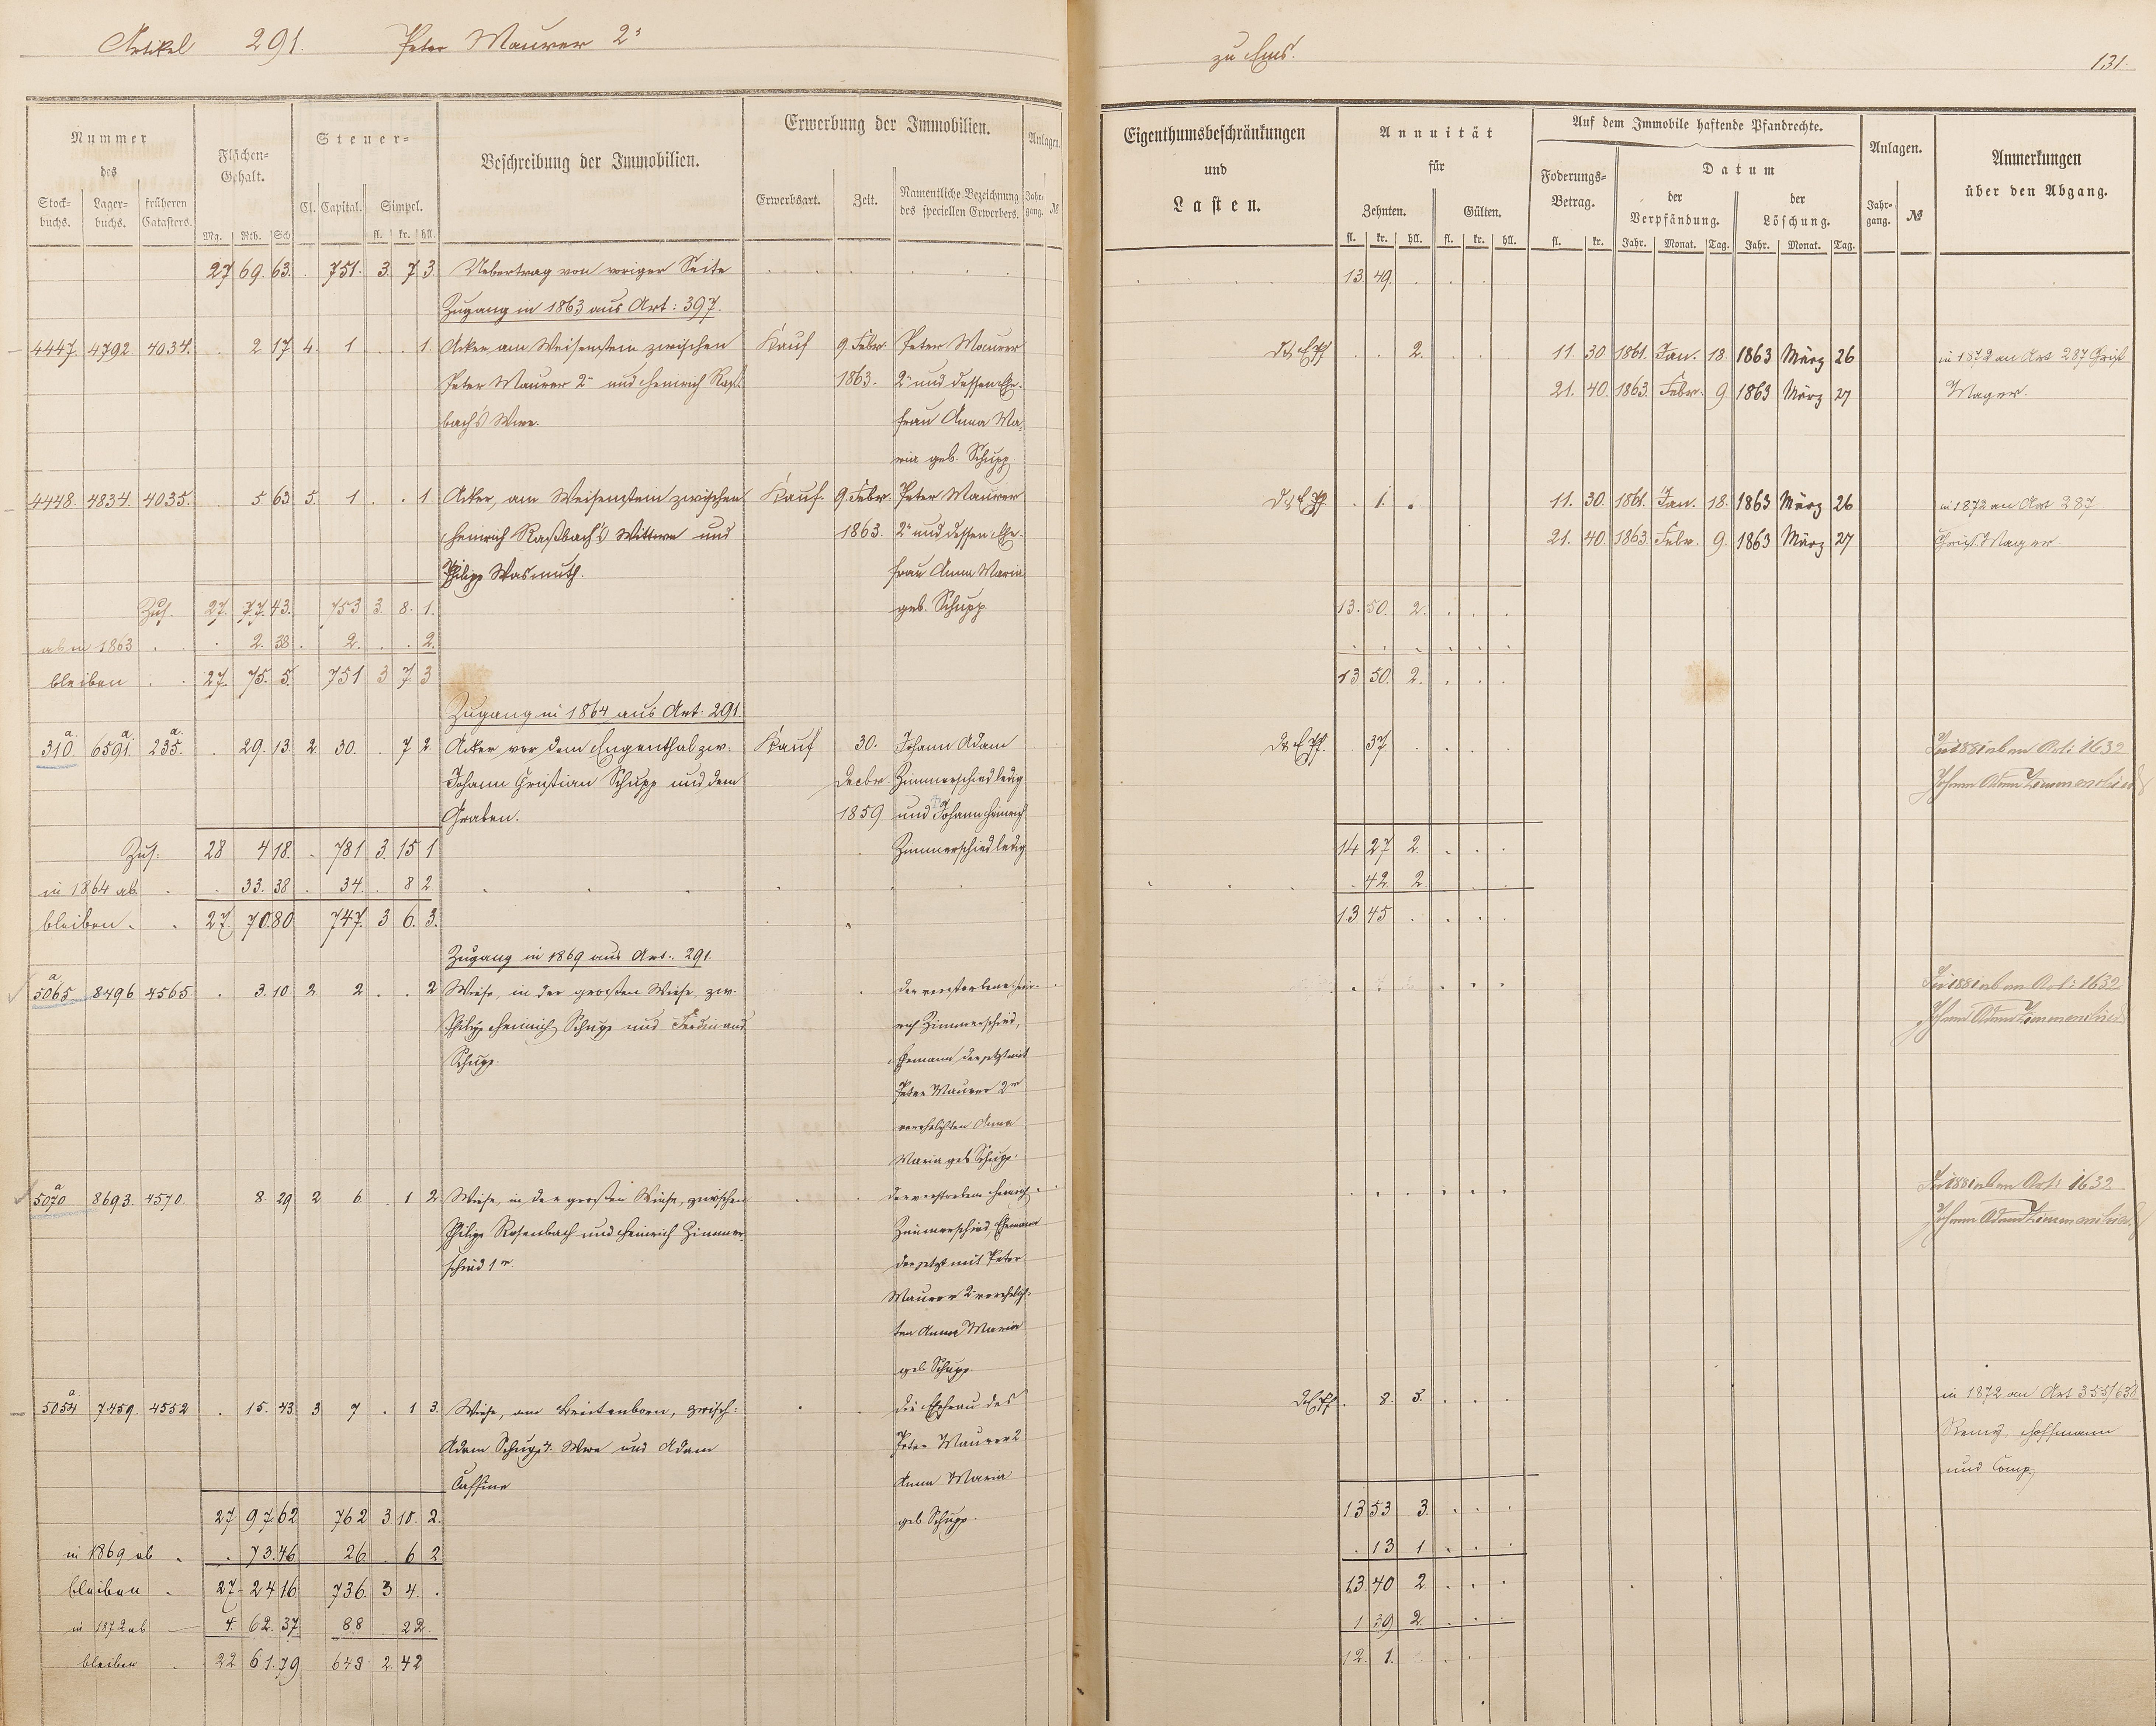 Artikel 291. Peter Maurer 2r
zu Ems.
131.
Nummer
des
Stock-
buchs.
Lager-
buchs.
früheren
Catasters.
Flächen-
Gehalt.
Mg. Rth. Sch
Steuer-
Cl. Capital. Simpel.
fl. kr. hll.
Beschreibung der Immobilien.
Erwerbung der Immobilien.
Erwerbsart. Zeit. Namentliche Bezeichnung
des speciellen Erwerbers.
Anlagen.
Jahr-
gang. №
Eigenthumsbeschränkungen
und
Lasten.
Annuität
für
Zehnten. Gülten.
fl. kr. hll. fl. kr. hll.
Auf dem Immobile haftende Pfandrechte.
Foderungs-
Betrag.
fl. kr.
Datum
der
Verpfändung.
der
Löschung.
Jahr. Monat. Tag. Jahr. Monat. Tag.
Anlagen.
Jahr-
gang. №
Anmerkungen
über den Abgang.
27 69. 63. . 751. 3. 7 3. Uebertrag von voriger Seite 13. 49.
Zugang in 1863 aus Art: 397.
4447. 4792 4034. . 2 17 4. 1 . . 1. Acker, am Weisenstein zwischen Kauf 9. Febr. Peter Maurer 2. 11. 30 1861. Jan. 18. 1863 März 26 in 1872 an Art 287 Christ
Peter Maurer 2r und Heinrich Raß- 1863. 2r und dessen Ehe- 21. 40. 1863. Febr. 9. 1863 März 27 Mager.
bach's Wwe. frau Anna Ma-
ria geb. Schupp
4448. 4834. 4035. . 5. 63 5. 1 . . 1 Acker, am Weisenstein zwischen Kauf. 9. Febr. Peter Maurer . 1. . 11. 30. 1861. Jan. 18. 1863 März 26 in 1872 an Art 287
Heinrich Raßbach's Wittwe und 1863. 2r und dessen Ehe- 21. 40. 1863. Febr. 9. 1863 März 27 Christ Mager.
Philipp Wasmuth. frau Anna Maria
Zus. 27. 77. 43. 753 3. 8. 1. geb. Schupp 13. 50. 2.
ab in 1863 . . 2. 38 . 2. . . 2.
bleiben . . 27. 75. 5. 751 3 7 3 13 50. 2.
Zugang in 1864 aus Art: 291.
310 a. 6591 a. 235 a. . 29. 13. 2. 30. . 7 2. Acker vor dem Engenthal zw. Kauf 30. Johann Adam . 37. In 1881 ab an Art: 1632
Johann Christian Schupp und dem Decbr Zimmerschied ledig Johann Adam Zimmerschied
Graben. 1859 und Johann Heinrich
Zus. 28 4 18. . 781 3. 15 1 Zimmerschied ledig 14 27 2.
in 1864 ab. . . 33. 38 . 34. . 8 2. . 42. 2.
bleiben . . 27. 70 80 747. 3 6. 3. 13 45
Zugang in 1869 aus Art: 291.
5065 a 8496 4565 . 3. 10. 2 2 . . 2 Wiese, in der großen Wiese, zw. der verstorbene Hein- In 1881 ab an Art: 1632
Philipp Heinrich Schupp und Ferdinand rich Zimmerschied, Johann Adam Zimmerschied
Schupp. Ehemann der jetzt mit
Peter Maurer 2r
verehelichten Anna
Maria geb Schupp.
5070 a 8693. 4570. 8. 29 2 6 . 1 2. Wiese, in der großen Wiese, zwischen der verstorbene Heinrich In 1881 ab an Art: 1632
Philipp Rosenbach und Heinrich Zimmer- Zimmerschied, Ehemann Johann Adam Zimmerschied
schied 1r. der jetzt mit Peter
Maurer 2r verehelich-
ten Anna Maria
geb Schupp.
5054 a 7459. 4552 . 15. 43. 3 7 . 1 3. Wiese, am Breitenborn, zwisch: die Ehefrau des . 8. 3. in 1872 an Art 355/630
Adam Schupp 4. Wwe und Adam Peter Maurer 2 Remy, Hoffmann
Caffine Anna Maria und Comp.
27 97. 62 762 3 10. 2. geb Schupp. 13 53 3.
in 1869 ab . . 73. 46 26 . 6 2 . 13 1
bleiben . 27. 24 16 736. 3 4. . 13. 40 2.
in 1872 ab 4. 62. 37. 88 . 22. 1 39 2.
bleiben . 22 61. 79 648 2. 42 12. 1.